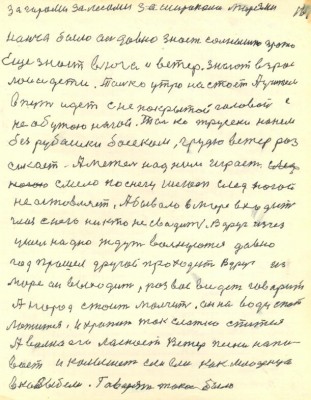 за горами за лесами за широкими морями
было он давно знает солнышко
Еще знает вьюга и ветер. Знают взрос
лые и дети. Только утро настает А путем
в путь идет с не покрытой головой с
не обутою ногой. Только трусики на нем
без рубашки босиком, грудью ветер раз
секает. А метел над ним играет.
смело по снегу шагает след ногой
не оставляет. А бывало в море входит
глаз с него никто не сводит. Вдруг исчез
ушел на дно ждут волнуются давно
год прошел другой проходит Вдруг из
моря он выходит, раз вас видет говорит
А народ стоит молчит. он на воду спат
ложится, и храпит так сладко спится
А волна его ласкает Ветер песни напе
вает и колышит словно как младенца
в колыбели. Говорят такое было